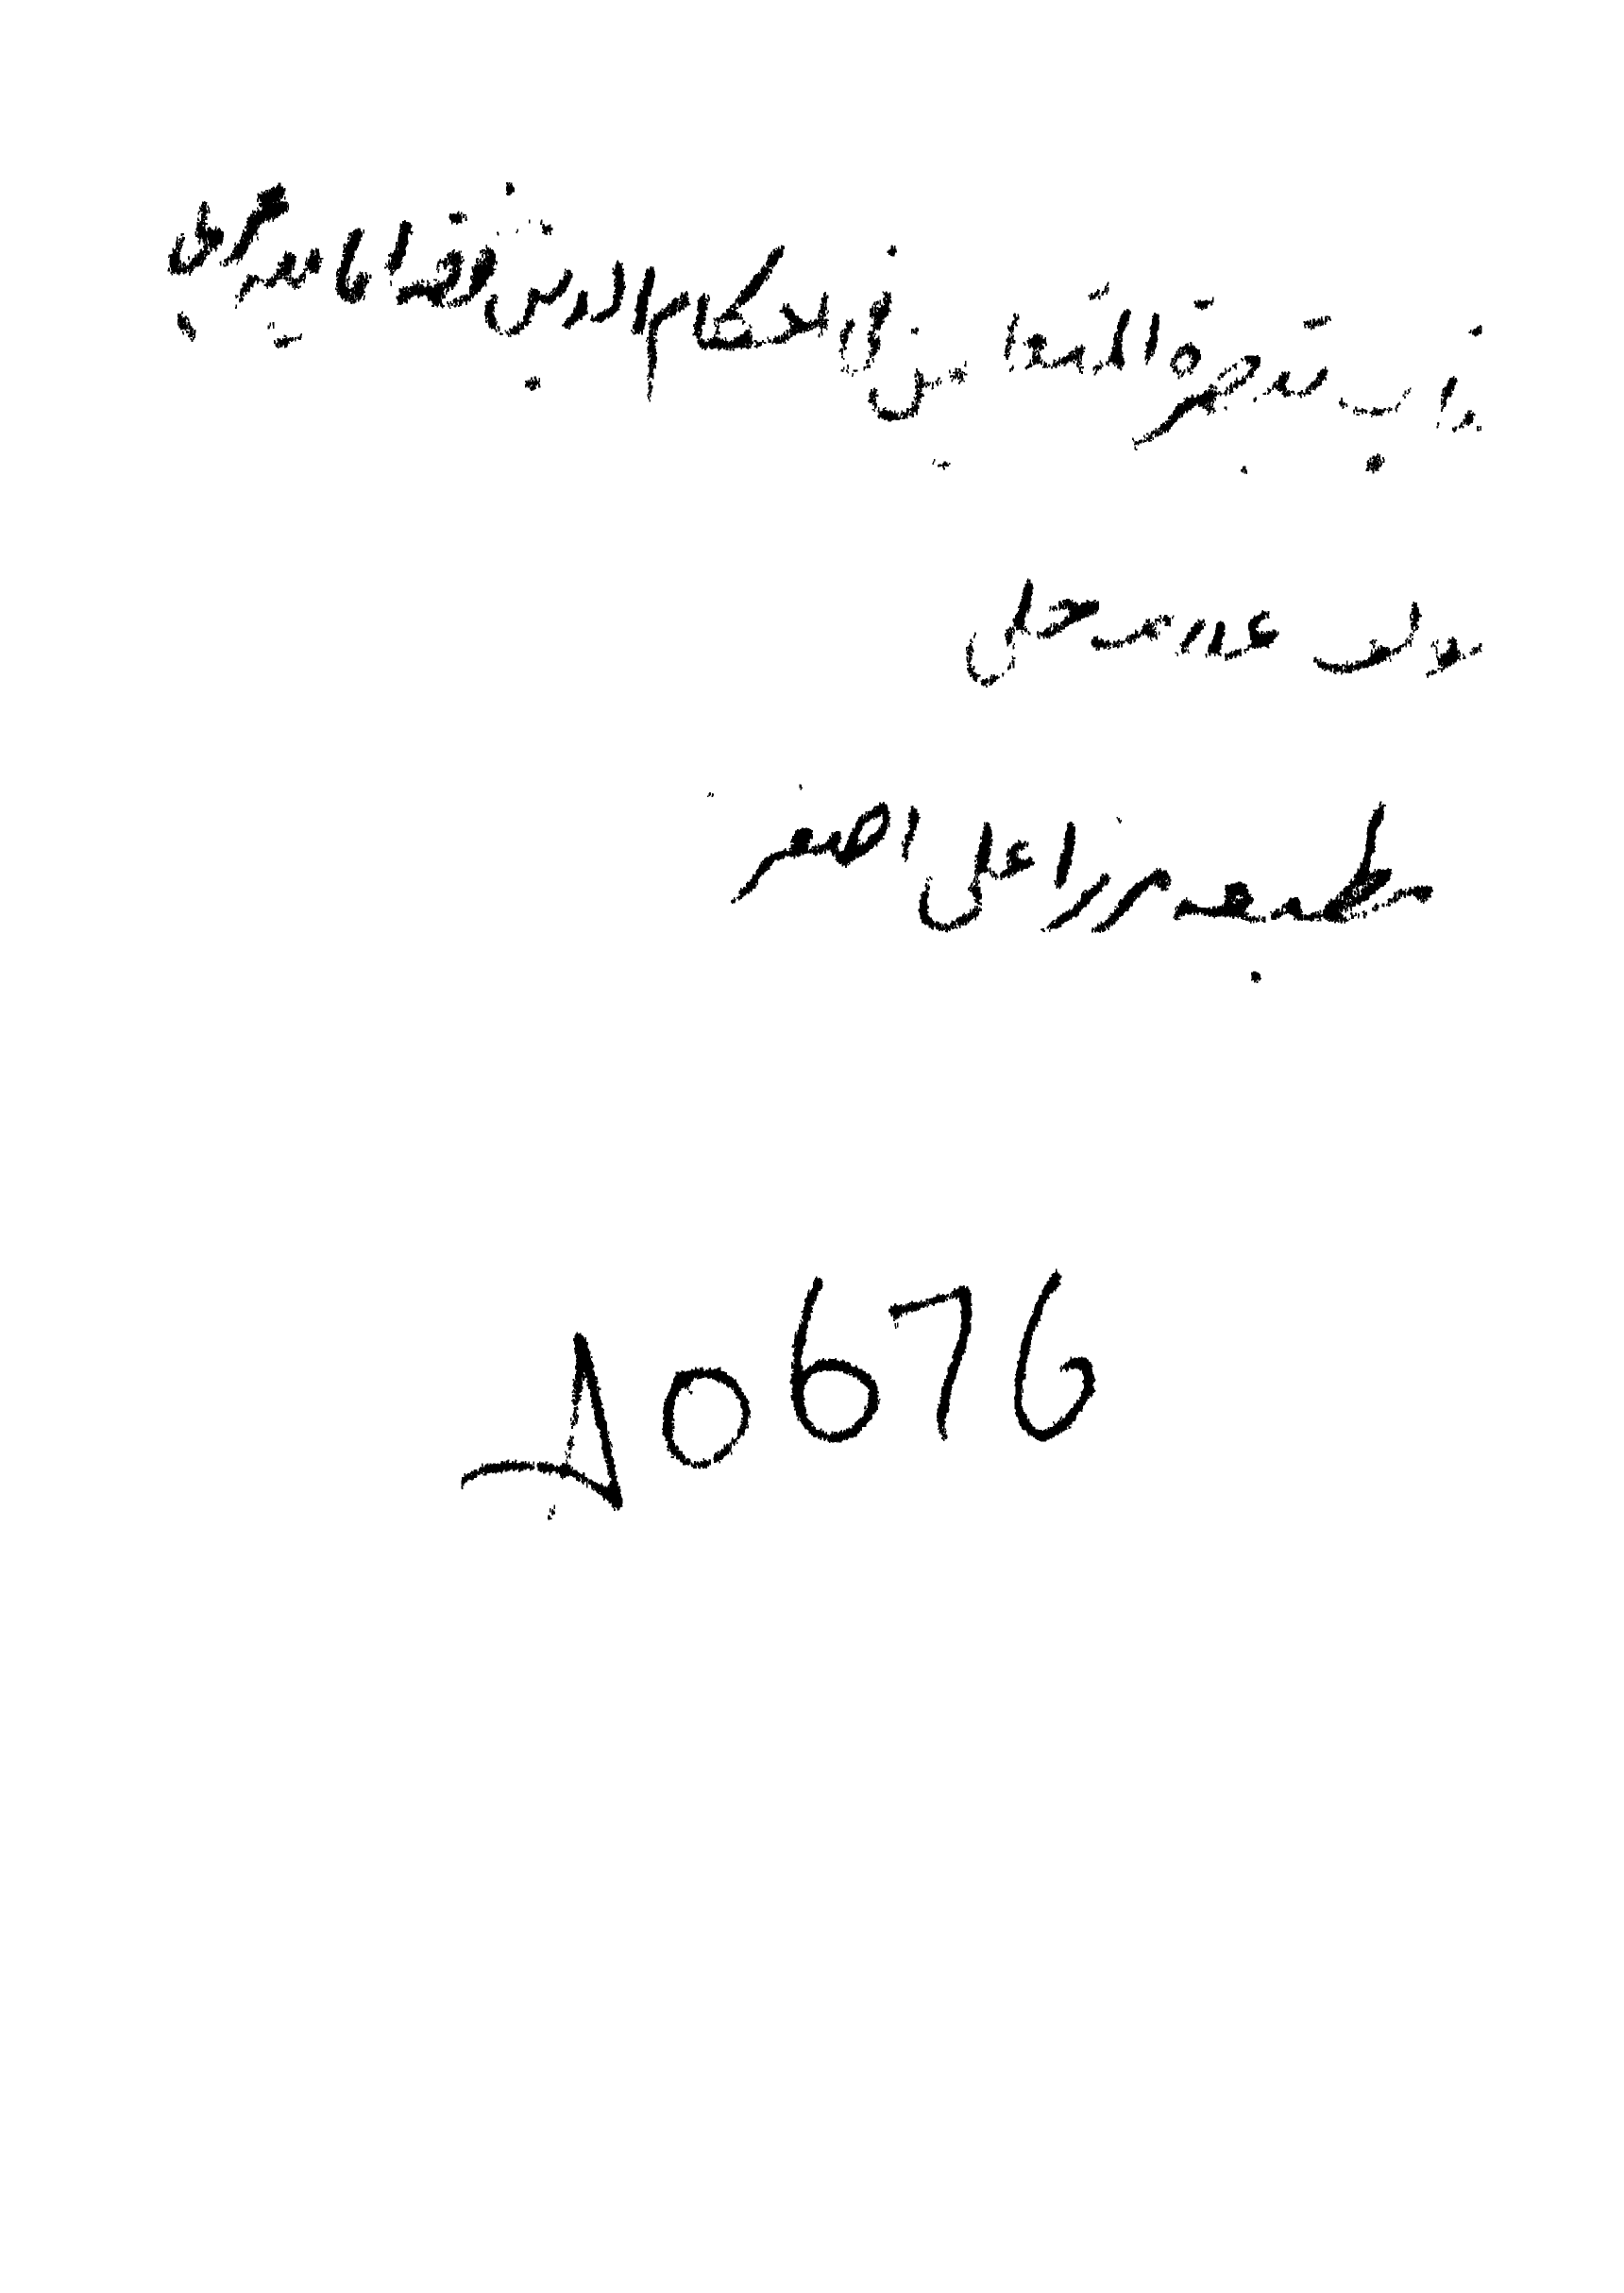 تبصرة المتعلمین فی احکام الدین فقه امامیه عربی
مولف علامه حلی
مطبعه میرزا علی اصغر
10676